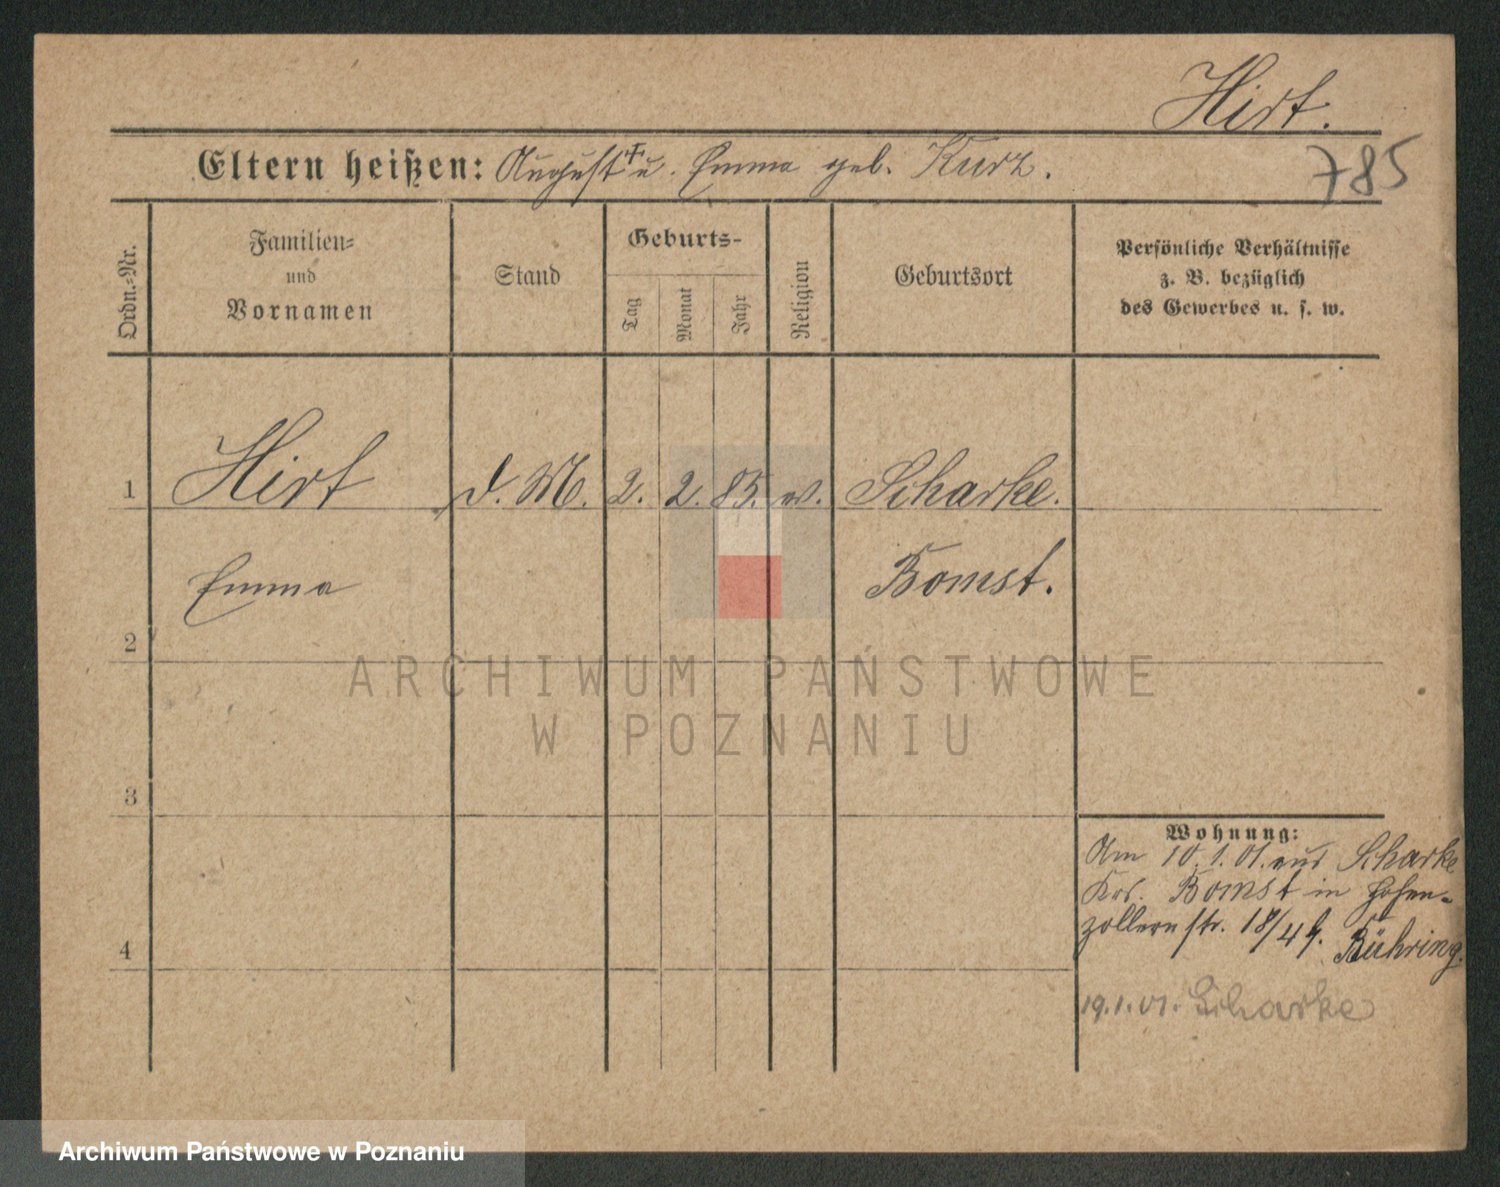 Hirt.
Eltern heißen: August † u. Emma geb. Kurz.
785
Ordn.-Nr.
Familien-
und
Vornamen
Stand
Geburts-
Tag
Monat
Jahr
Religion
Geburtsort
Persönliche Verhältnisse
z. B. bezüglich
des Gewerbes u. s. w.
1 Hirt d. M. 2. 2. 85. ev. Scharke.
Emma Bomst.
2
ARCHIWUM PAŃSTWOWE
W POZNANIU
3
Wohnung:
Am 10.1.01. aus Scharke
Krs. Bomst in Hohen-
zollernstr. 18/4 b. Bühring.
4
19.1.01. Scharke
Archiwum Państwowe w Poznaniu